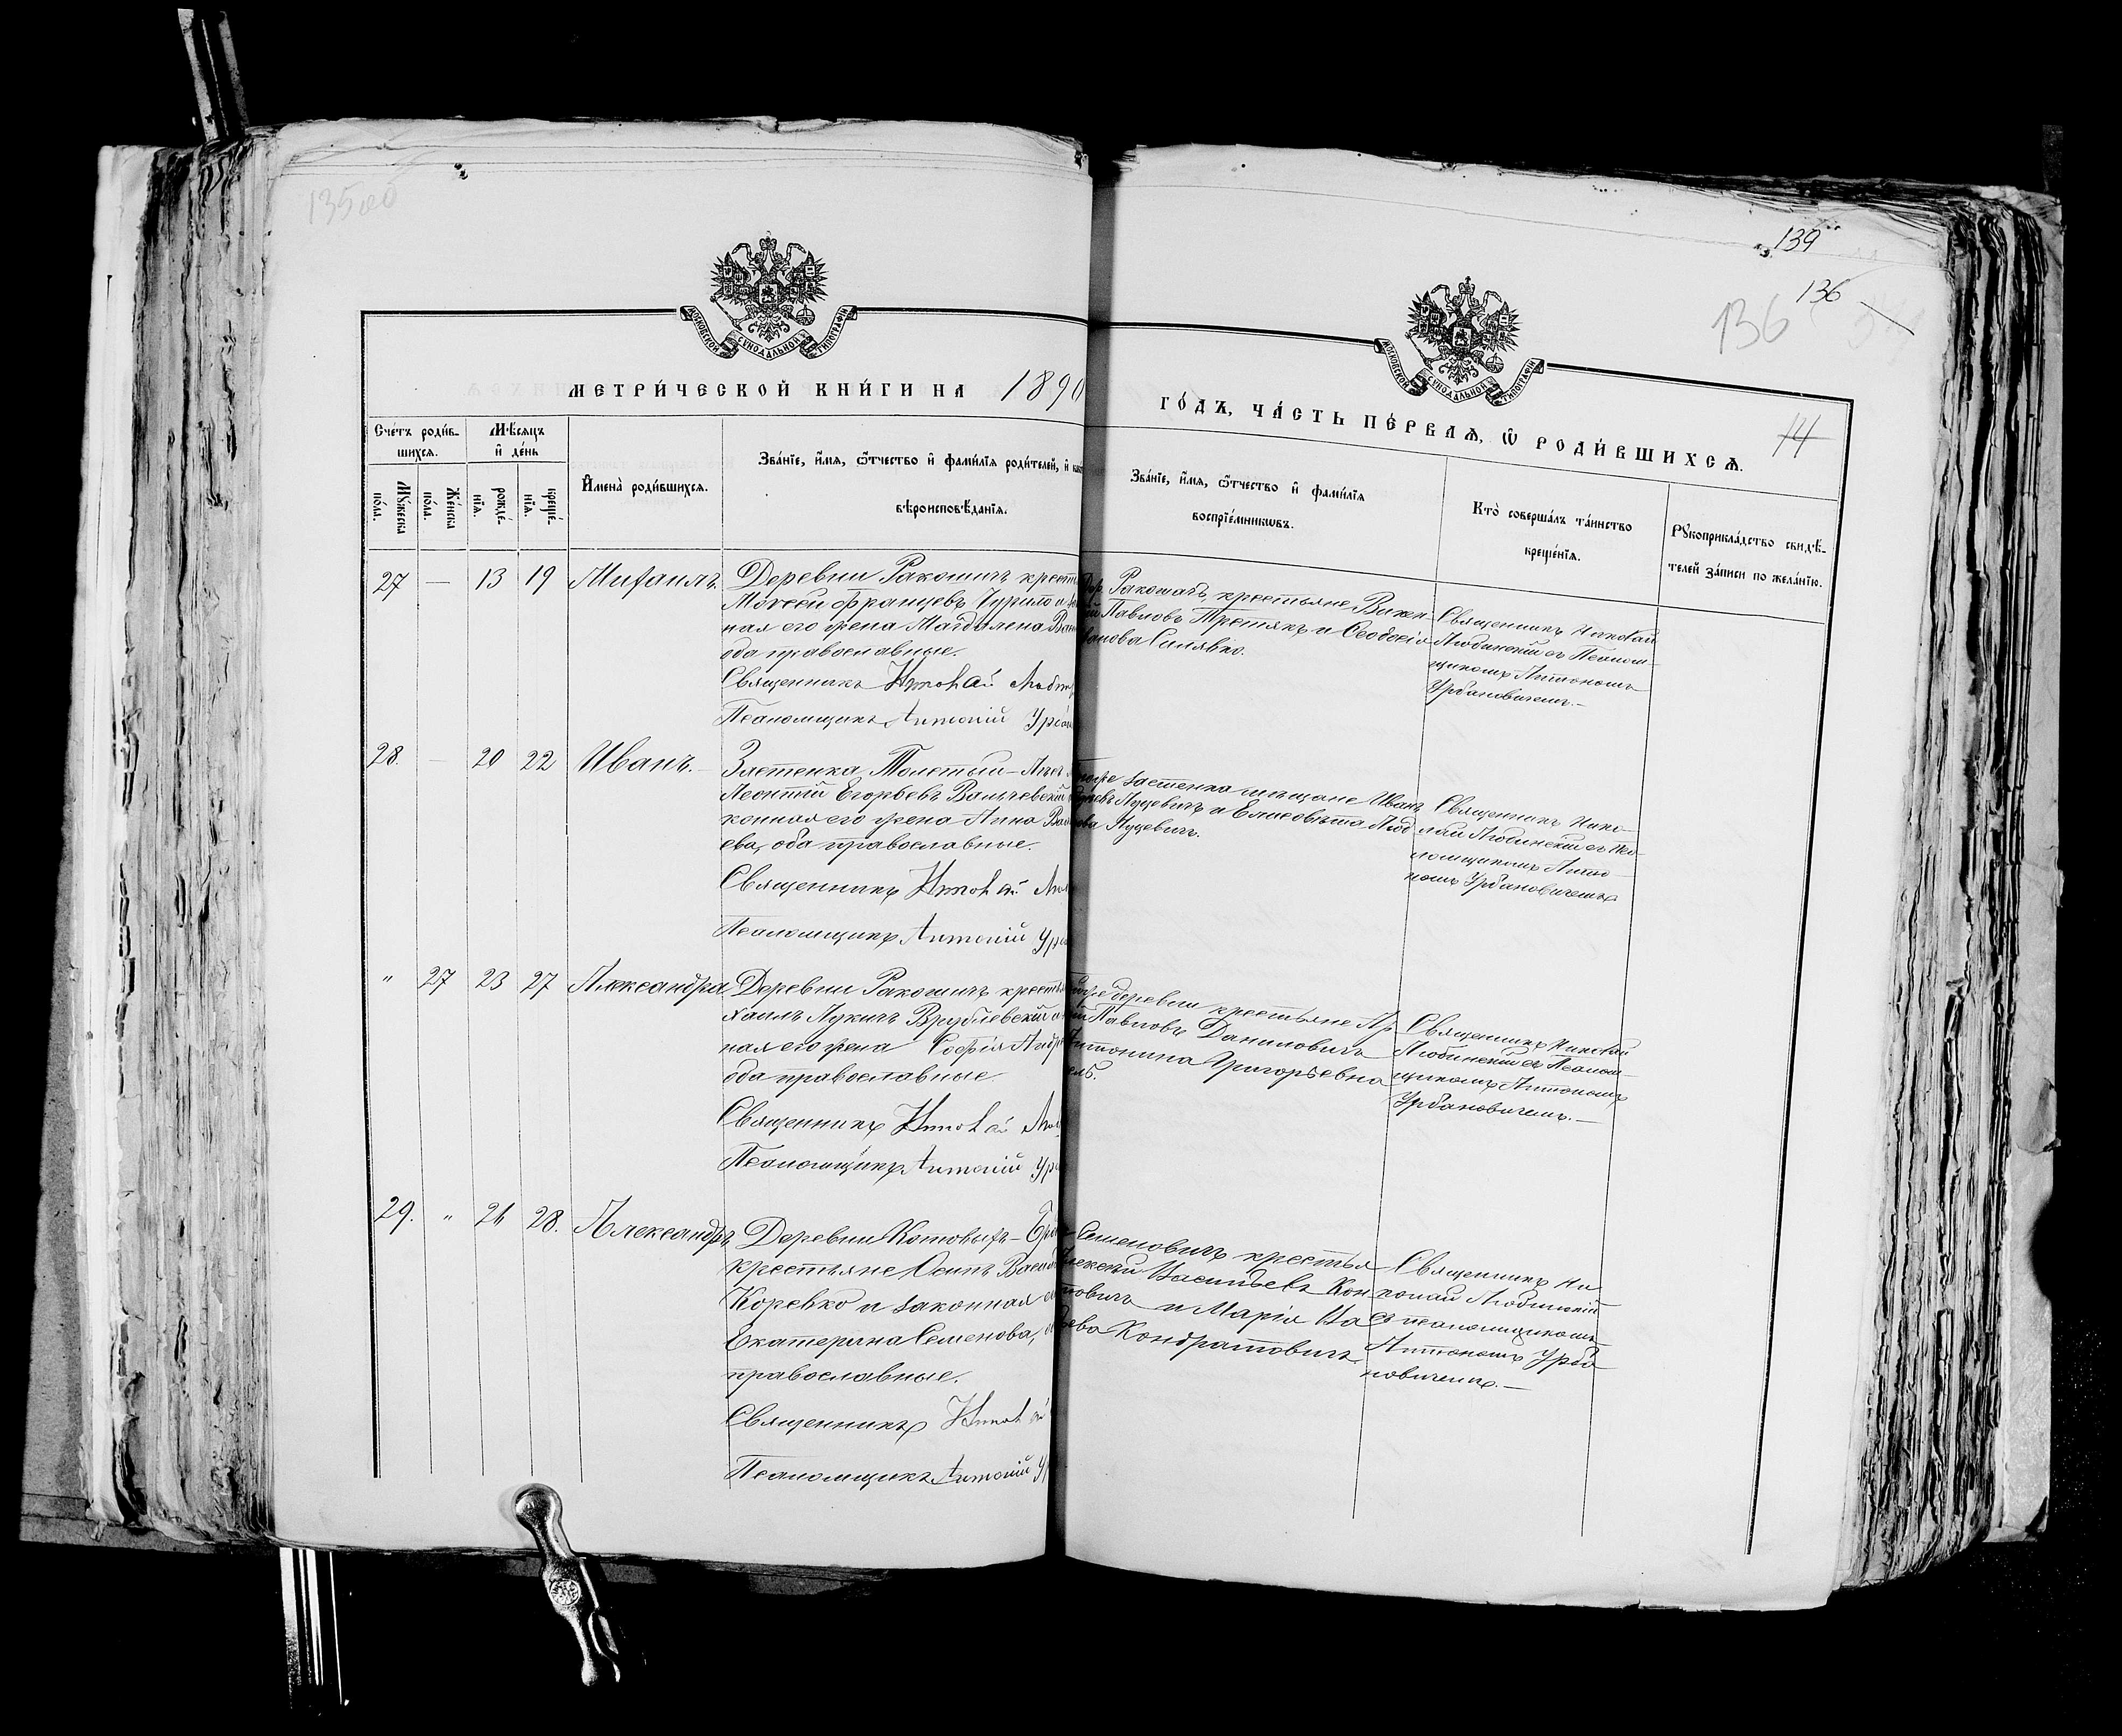 135об
139
136
136
14
МОСКОВСКОЙ СУНОДАЛЬНОЙ ТИПОГРАФІИ
МОСКОВСКОЙ СУНОДАЛЬНОЙ ТИПОГРАФІИ
МЕТРИ́ЧЕСКОЙ КНИ́ГИ НА 1890
ГО́ДЪ, ЧА́СТЬ ПЕ́РВАѦ, Ѽ РОДИ́ВШИХСѦ.
Счетъ роди́в-
шихся.
Мѣсяцъ
и҆ де́нь
Мꙋ́жеска
по́ла.
Же́нска
по́ла.
рожде́-
нїѧ.
креще́-
нїѧ.
И҆мена̀ роди́вшихсѧ.
Зва́нїе, и҆́мѧ, ѻ҆́тчество и҆ фами́лїѧ роди́телей, и҆
вѣроисповѣ́данїѧ.
Зва́нїе, и҆́мѧ, ѻ҆́тчество и҆ фами́лїѧ
воспрїе́мникѡвъ.
Кто̀ соверша́лъ та́инство
креще́нїѧ.
Рꙋкоприкла́дство свидѣ́-
телей за́писи по жела́нїю.
27 — 13 19 Михаилъ.
Деревни Ракошичъ крест
Моисей Францевъ Чурило и
ная его жена Магдалена
оба православные.
Священникъ Николай
Псаломщикъ Антоній
Дер. Ракошичъ, крестьяне Викен-
тій Павловъ Третякъ и Ѳеодосія
Силявко.
Священникъ Николай
Любинскій съ Псалом-
щикомъ Антономъ
Урбановичемъ.—
28. — 20 22 Иванъ.—
Застенка Толстый-
Леонтій Егорьевъ Вальчевскій
конная его жена Анна
ева, оба православные.
Священникъ Николай
Псаломщикъ Антоній
застенка мѣщане Иванъ
Луцевичъ и Елисавета
Луцевичъ.
Священникъ Нико-
лай Любинскій съ Пса-
ломщикомъ Анто-
номъ Урбановичемъ
" 27 23 27 Александра
Деревни Ракошичъ крестья
хаилъ Лукичъ Врублевскій и
ная его жена Софія
оба православные.
Священникъ Николай
Псаломщикъ Антоній
деревни крестьяне
Павловъ Даниловичъ
Антонина Григорьевна
Священникъ Николай
Любинскій съ Псалом-
щикомъ Антономъ
Урбановичемъ.—
29. " 26 28. Александръ
Деревни Котовыхъ-
крестьяне Осипъ
Коревко и законная
Екатерина Семенова,
православные.
Священникъ Николай
Псаломщикъ Антоній
Семеновичъ крестья
Алексѣй Васильевъ Кон
и Марія Ва
Кондратовичъ
Священникъ Ни-
колай Любинскій
съ псаломщикомъ
Антономъ Урба-
новичемъ.—